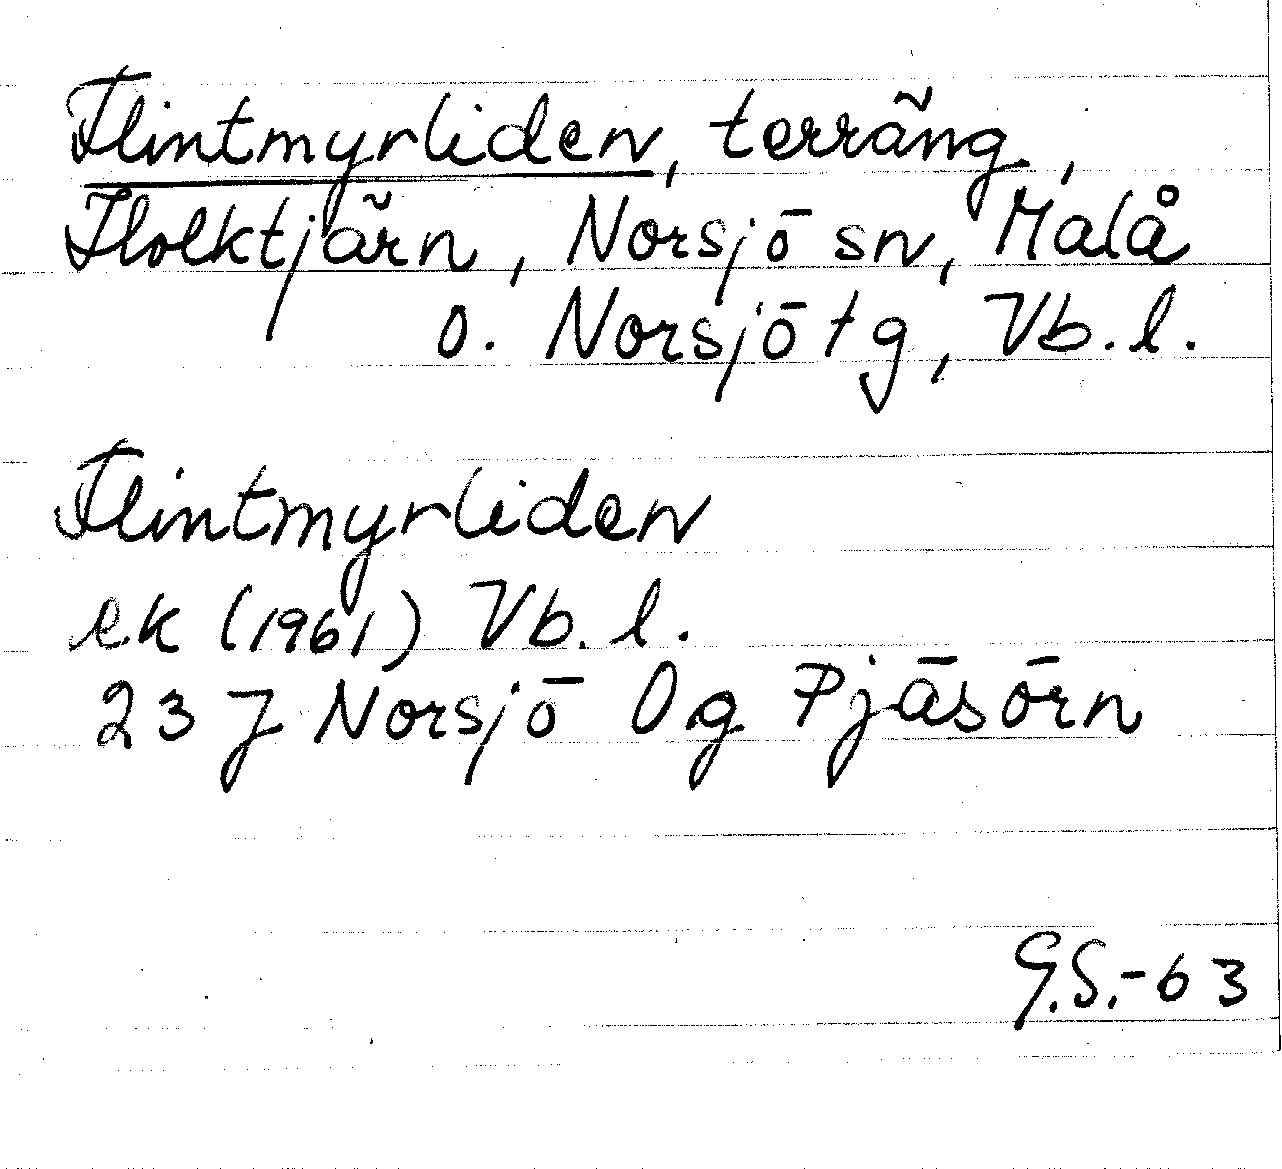 Flintmyrliden, terräng,
Holktjärn, Norsjö sn, Malå
o. Norsjö tg, Vb. l.
Flintmyrliden
ek (1961) Vb. l.
23 J Norsjö 0g Pjäsörn
G.S.-63